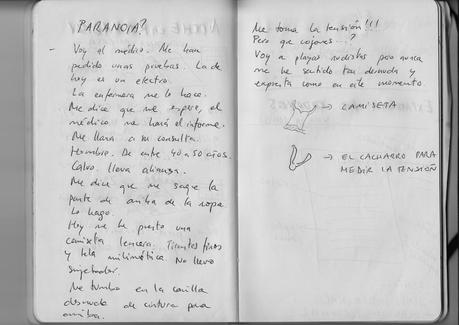 PARANOIA?
- Voy al médico. Me han
pedido unas pruebas. La de
hoy es un electro.
La enfermera me lo hace.
Me dice que me espere, el
médico me hará el informe.
Me lleva a su consulta.
Hombre. De entre 40 a 50 años.
Calvo. Lleva alianza.
Me dice que me saque la
parte de arriba de la ropa.
Lo hago.
Hoy me he puesto una
camiseta lencera. Tirantes finos
y tela milimética. No llevo
sujetador.
Me tumbo en la camilla
desnuda de cintura para
arriba.
Me toma la tensión!!!
Pero que cojones...?
Voy a playas nudistas pero nunca
me he sentido tan desnuda y
expuesta como en este momento.
→ CAMISETA
→ EL CACHARRO PARA
MEDIR LA TENSIÓN